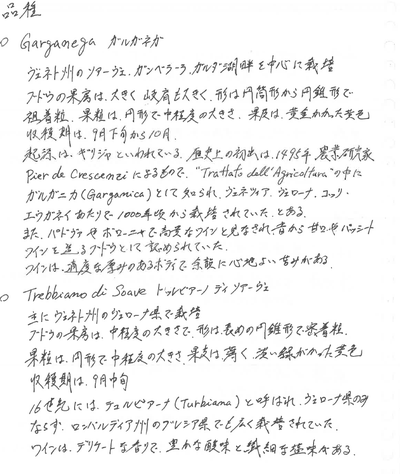 品種
○ Garganega ガルガネガ
ヴェネト州のソアーヴェ、ガンベッラーラ、ガルダ湖畔を中心に栽培
ブドウの果房は、大きく 岐肩も大きく、形は円筒形から円錐形で
粗着粒、果粒は、円形で中程度の大きさ、果皮は、黄金がかった黄色
収穫期は、9月下旬から10月、
起源は、ギリシャといわれている、歴史上の初出は、1495年 農業研究家
Pier de Crescenzi によるもので、"Trattato dell'Agricoltura" の中に
ガルガニカ (Garganica) として知られ、ヴェネツィア、ヴェローナ、コッリ・
エウガネイあたりで1000年頃から栽培されていた、とある。
また、パドヴァやボローニャで高貴なワインと見なされ、昔から甘口やパッシート
ワインを造るブドウとして認められていた。
ワインは、適度な厚みのあるボディで 余韻に心地よい苦みがある。
○ Trebbiano di Soave トレッビアーノ ディ ソアーヴェ
主にヴェネト州のヴェローナ県で栽培
ブドウの果房は、中程度の大きさで、形は、長めの円錐形で密着粒、
果粒は、円形で中程度の大きさ、果皮は、薄く、淡い緑がかった黄色
収穫期は、9月中旬
16世紀には、テュルビアーナ (Turbiana) と呼ばれ、ヴェローナ県のみ
ならず、ロンバルディア州のブレシア県でも広く栽培されていた。
ワインは、デリケートな香りで、豊かな酸味と繊細な塩味がある。